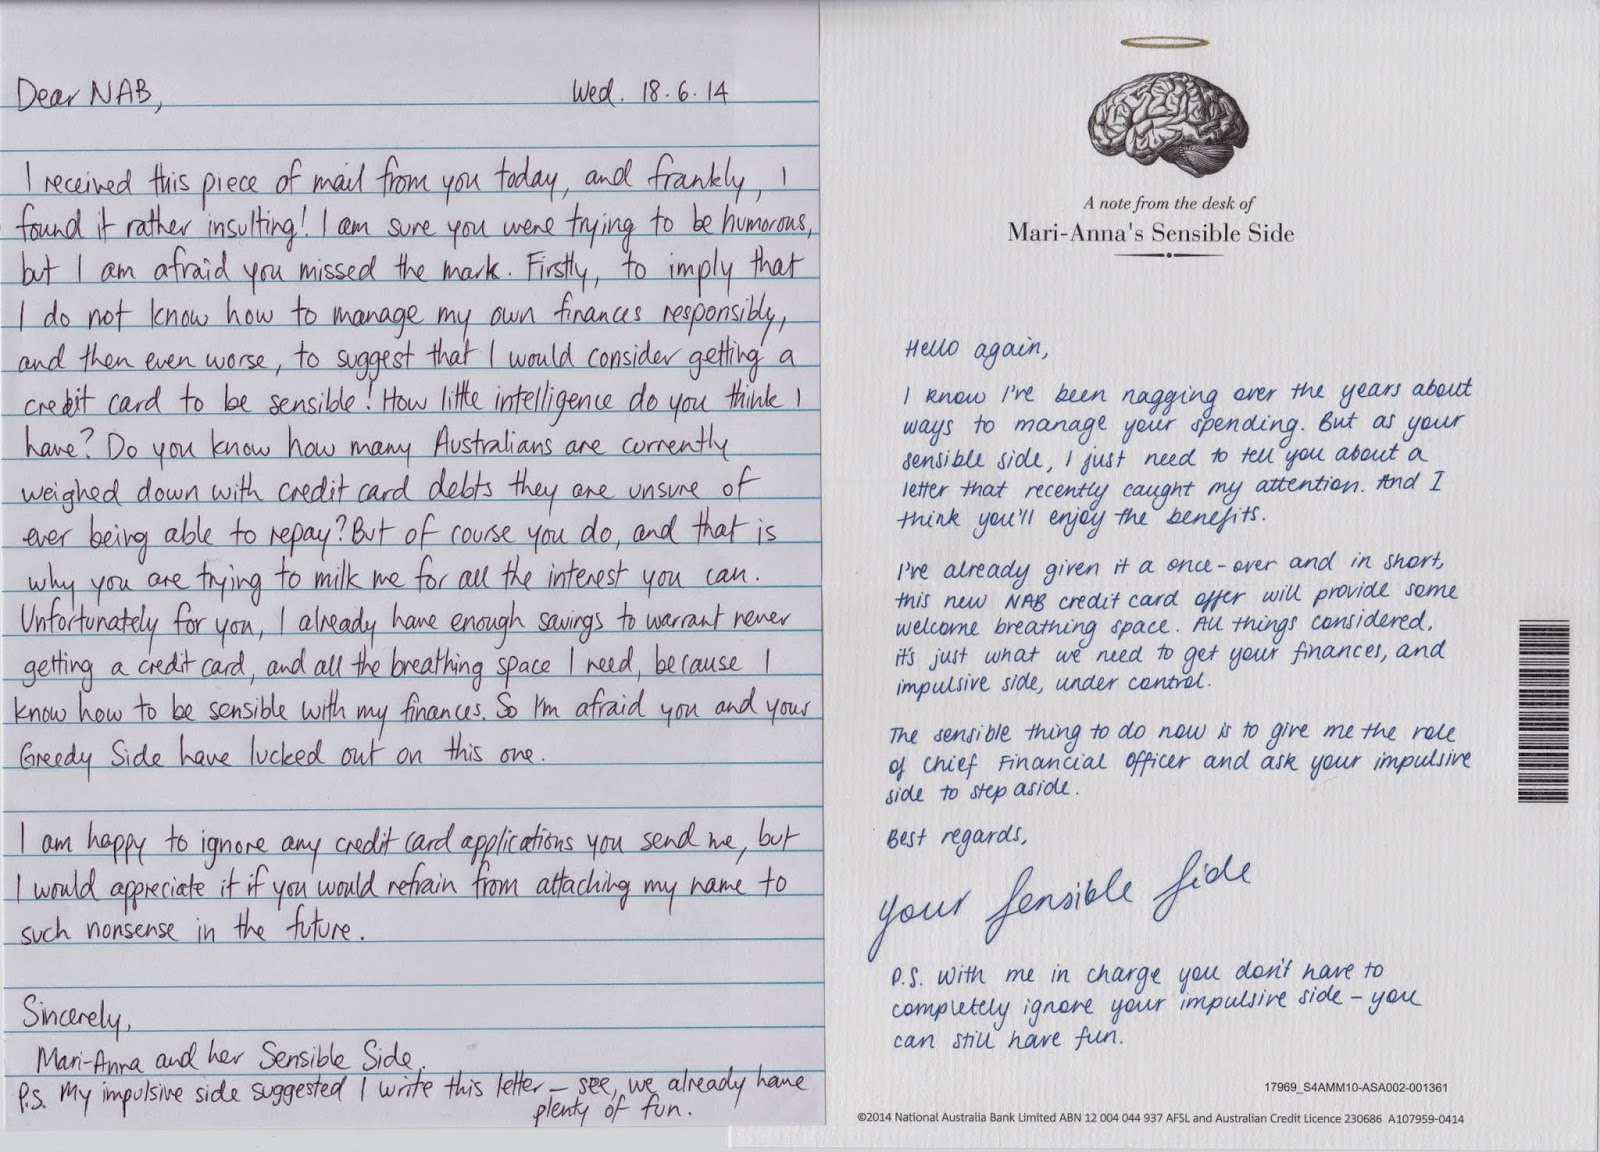 Dear NAB,
Wed. 18.6.14
I received this piece of mail from you today, and frankly, I
found it rather insulting! I am sure you were trying to be humorous,
but I am afraid you missed the mark. Firstly, to imply that
I do not know how to manage my own finances responsibly,
and then even worse, to suggest that I would consider getting a
credit card to be sensible! How little intelligence do you think I
have? Do you know how many Australians are currently
weighed down with credit card debts they are unsure of
ever being able to repay? But of course you do, and that is
why you are trying to milk me for all the interest you can.
Unfortunately for you, I already have enough savings to warrant never
getting a credit card, and all the breathing space I need, because I
know how to be sensible with my finances. So I'm afraid you and your
Greedy Side have lucked out on this one.
I am happy to ignore any credit card applications you send me, but
I would appreciate it if you would refrain from attaching my name to
such nonsense in the future.
Sincerely,
Mari-Anna and her Sensible Side.
P.S. My impulsive side suggested I write this letter — see, we already have
plenty of fun.
A note from the desk of
Mari-Anna's Sensible Side
Hello again,
I know I've been nagging over the years about
ways to manage your spending. But as your
sensible side, I just need to tell you about a
letter that recently caught my attention. And I
think you'll enjoy the benefits.
I've already given it a once-over and in short,
this new NAB credit card offer will provide some
welcome breathing space. All things considered,
it's just what we need to get your finances, and
impulsive side, under control.
The sensible thing to do now is to give me the role
of Chief Financial Officer and ask your impulsive
side to step aside.
Best regards,
Your Sensible Side
P.S. With me in charge you don't have to
completely ignore your impulsive side – you
can still have fun.
17969_S4AMM10-ASA002-001361
©2014 National Australia Bank Limited ABN 12 004 044 937 AFSL and Australian Credit Licence 230686 A107959-0414